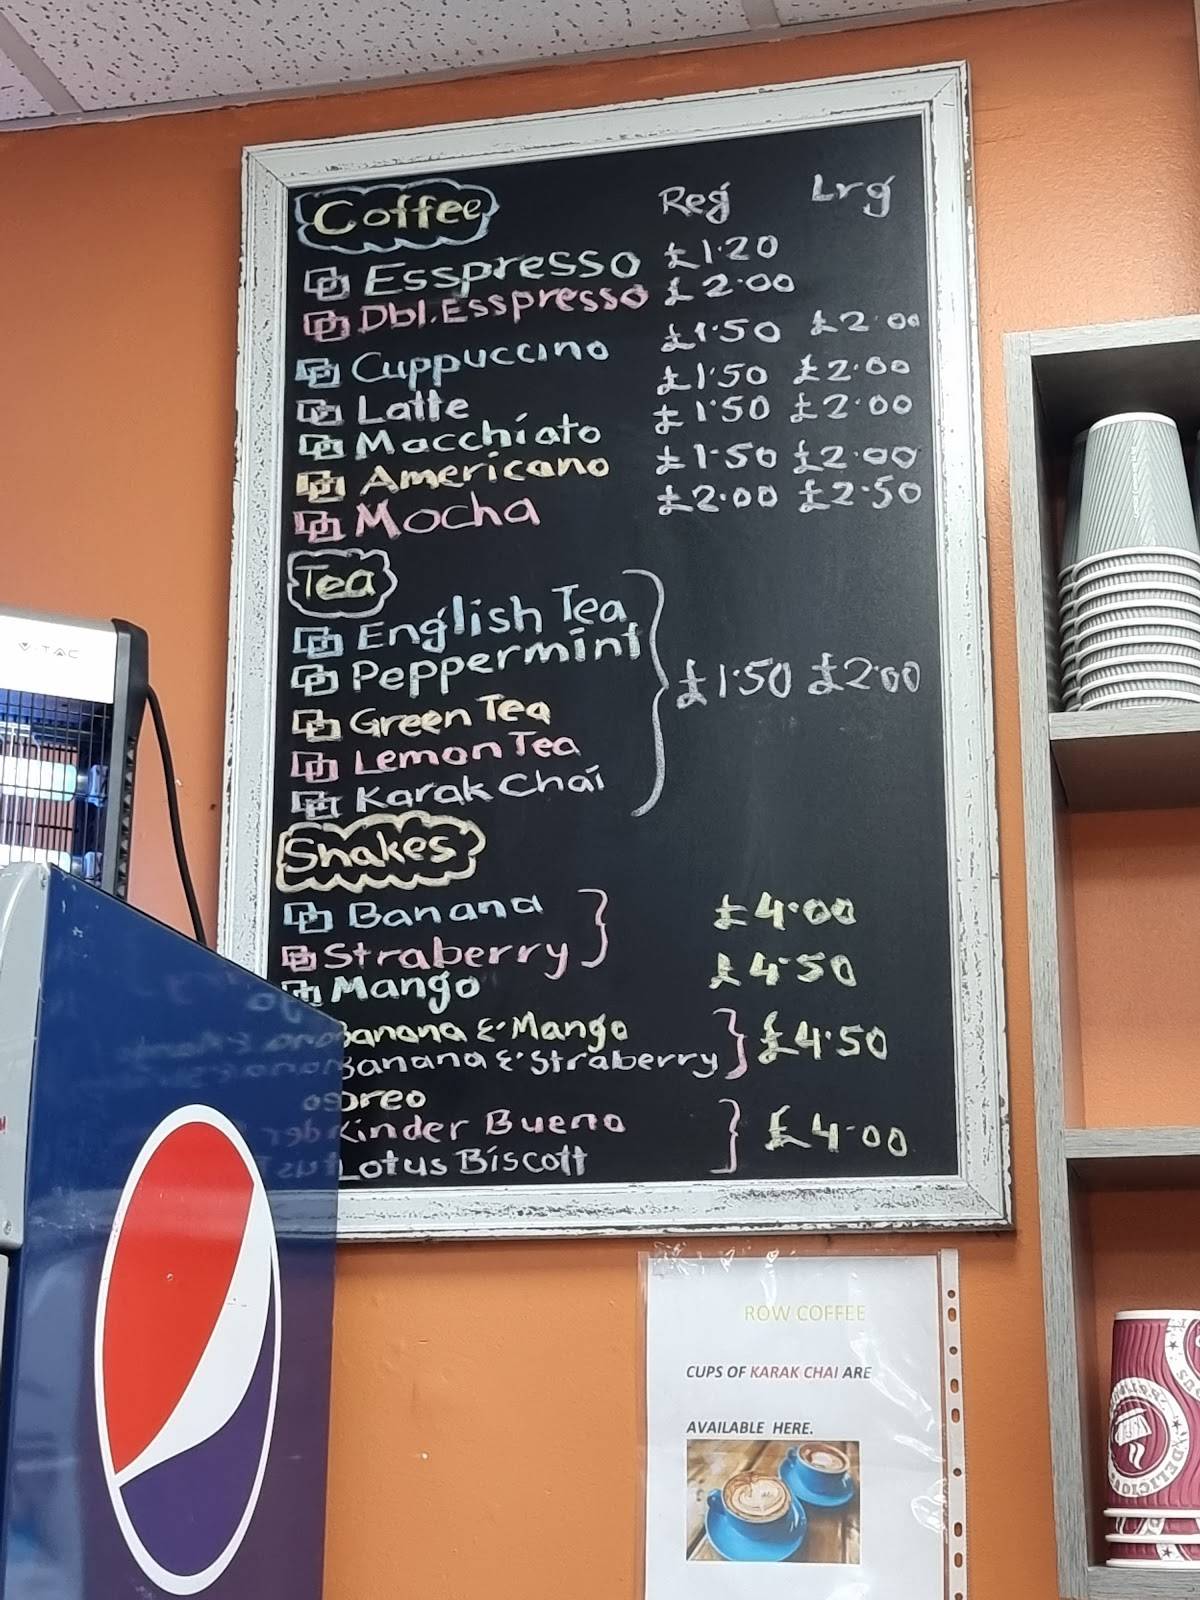 Coffee Reg Lrg
Esspresso £1.20
Dbl.Esspresso £2.00
Cuppuccino £1.50 £2.00
Latte £1.50 £2.00
Macchiato £1.50 £2.00
Americano £1.50 £2.00
Mocha £2.00 £2.50
Tea
English Tea
Peppermint
£1.50 £2.00
Green Tea
Lemon Tea
Karak Chai
Shakes
Banana £4.00
Straberry
Mango £4.50
Banana & Mango
Banana & Straberry £4.50
Oreo
Kinder Bueno £4.00
Lotus Biscott
V-TAC
ROW COFFEE
CUPS OF KARAK CHAI ARE
AVAILABLE HERE.